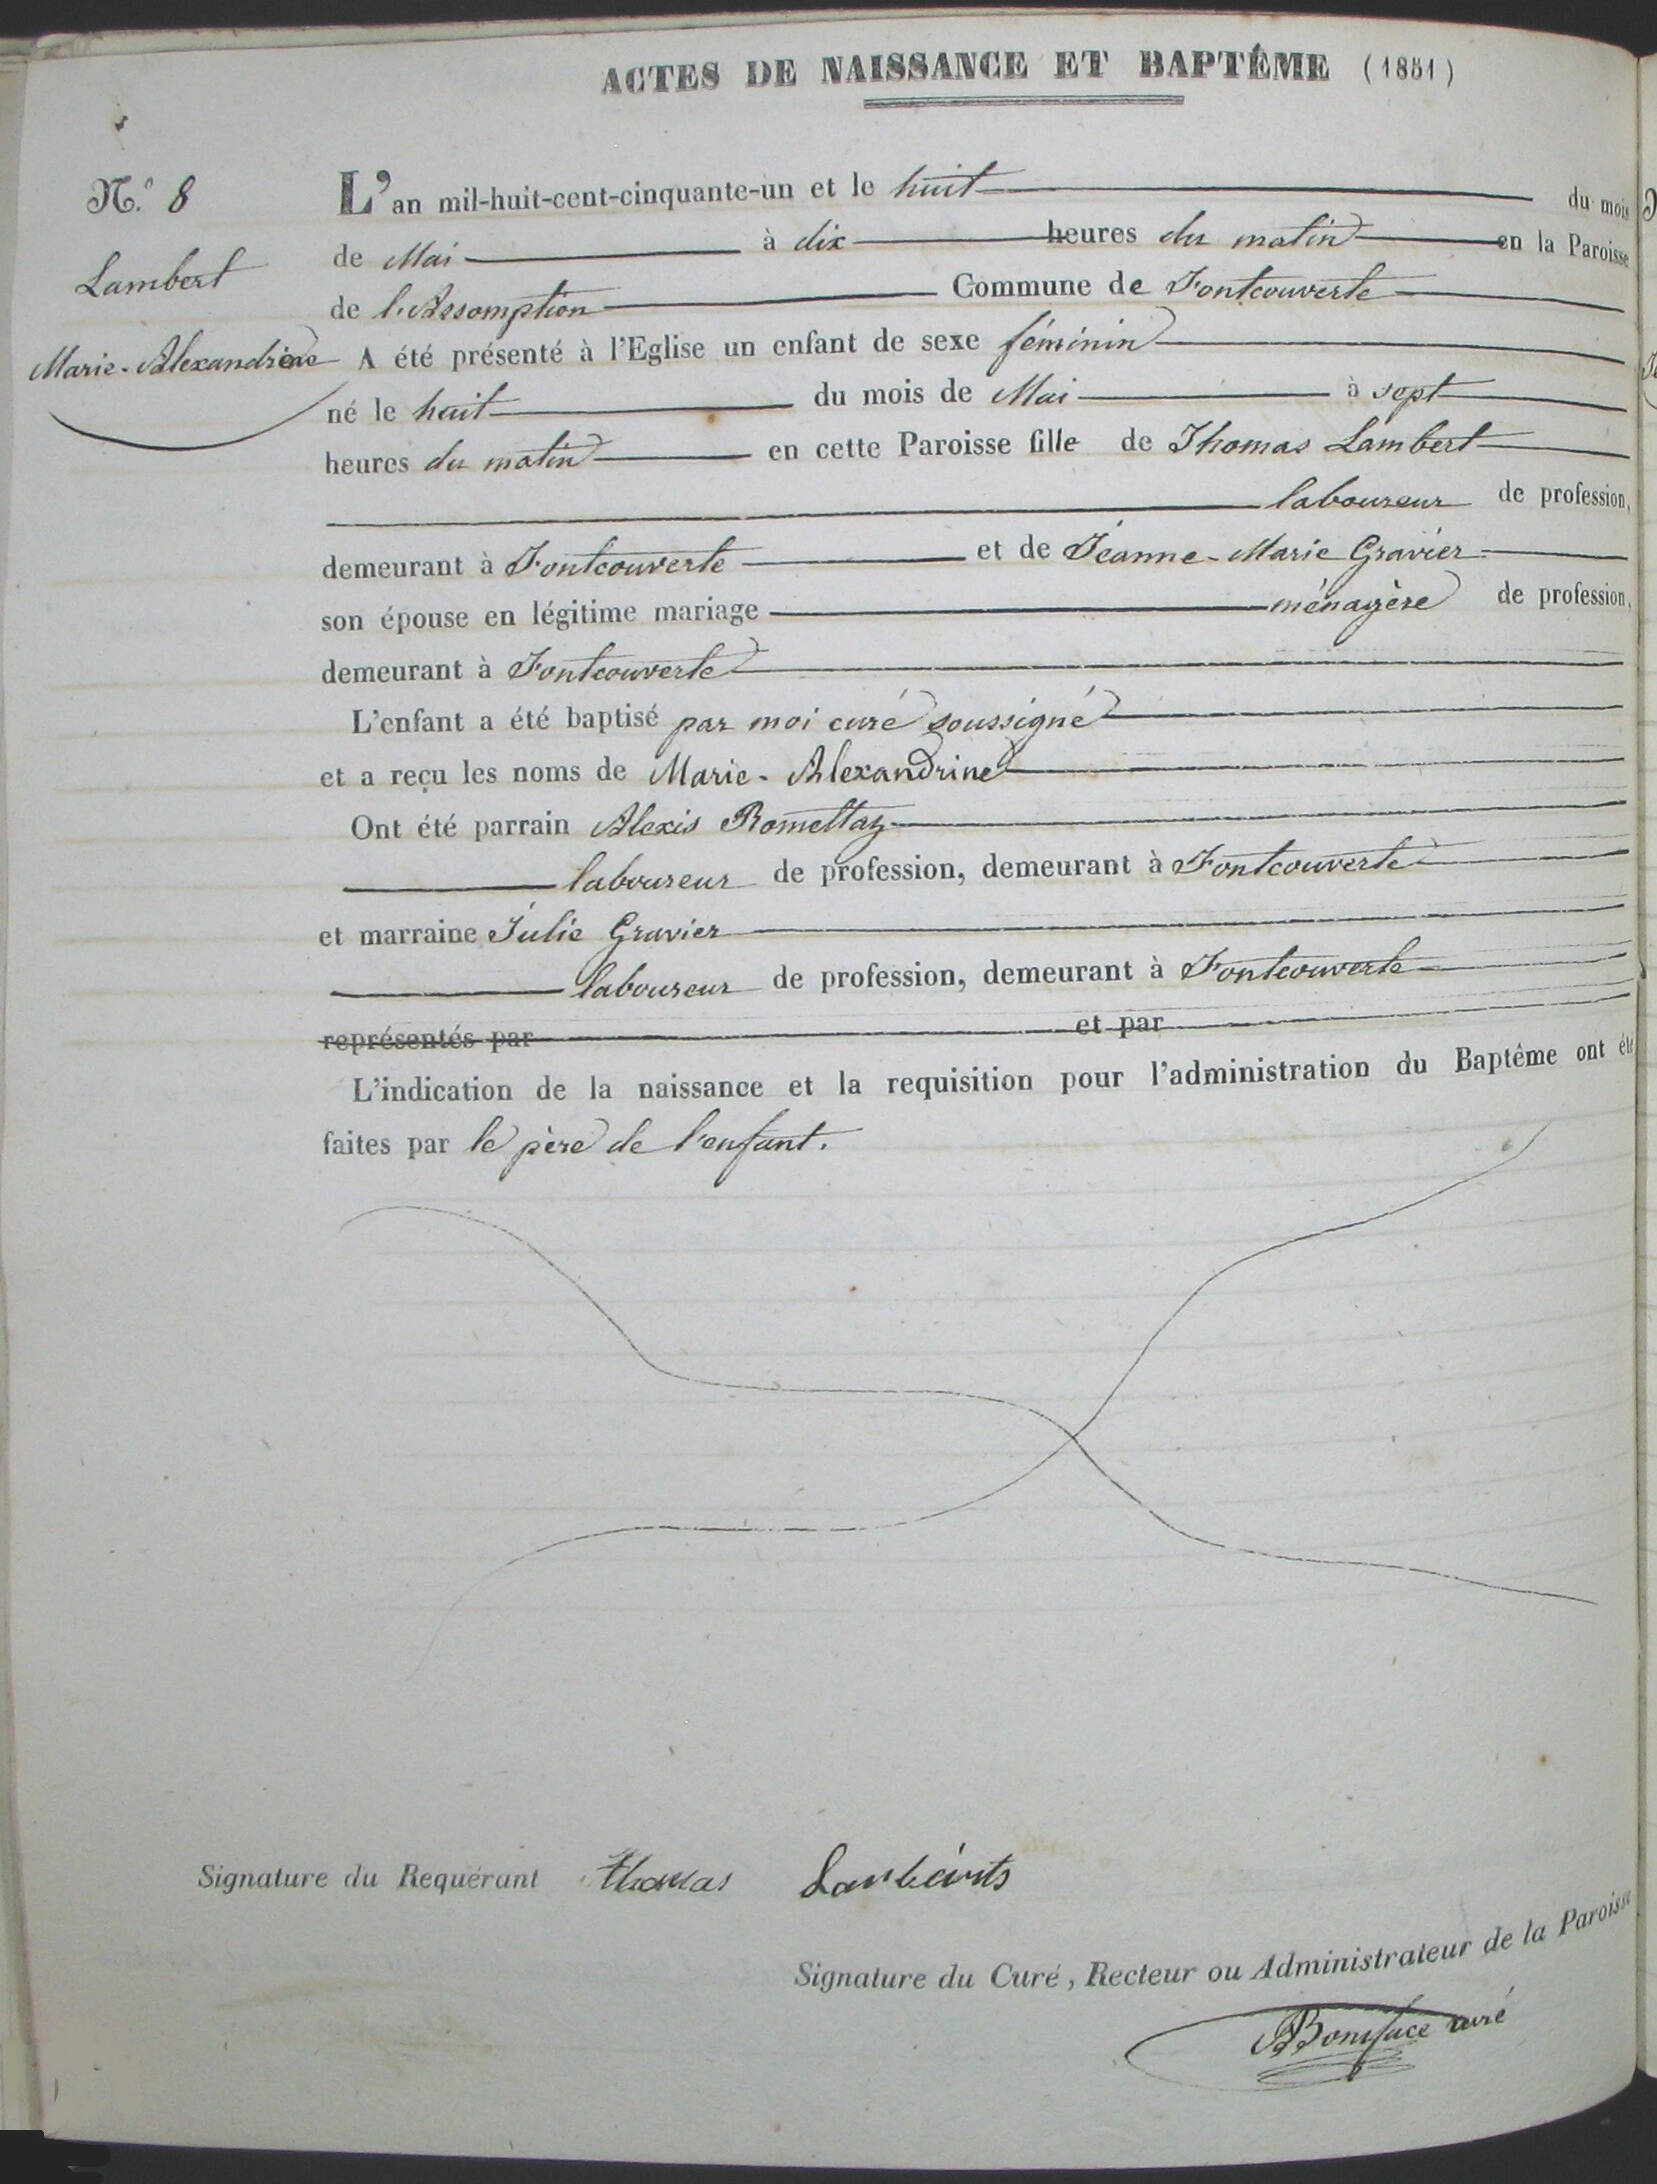 ACTES DE NAISSANCE ET BAPTÊME (1851)
N.° 8
Lambert
Marie-Alexandrine
L'an mil-huit-cent-cinquante-un et le huit du mois
de Mai à dix heures du matin en la Paroisse
de l'Assomption Commune de Fontcouverte
A été présenté à l'Eglise un enfant de sexe féminin
né le huit du mois de Mai à sept
heures du matin en cette Paroisse fille de Thomas Lambert
laboureur de profession,
demeurant à Fontcouverte et de Jeanne-Marie Gravier
son épouse en légitime mariage ménagère de profession,
demeurant à Fontcouverte
L'enfant a été baptisé par moi curé soussigné
et a reçu les noms de Marie-Alexandrine
Ont été parrain Alexis Romettaz
laboureur de profession, demeurant à Fontcouverte
et marraine Julie Gravier
laboureur de profession, demeurant à Fontcouverte
représentés par et par
L'indication de la naissance et la requisition pour l'administration du Baptême ont été
faites par le père de l'enfant.
Signature du Requérant Thomas
Signature du Curé, Recteur ou Administrateur de la Paroisse
Boniface curé